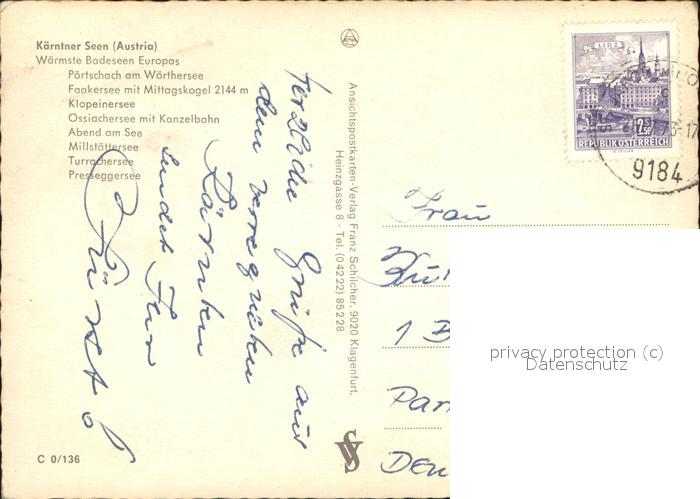 Kärntner Seen (Austria)
Wärmste Badeseen Europas
Pörtschach am Wörthersee
Faakersee mit Mittagskogel 2144 m
Klopeinersee
Ossiachersee mit Kanzelbahn
Abend am See
Millstättersee
Turrachersee
Presseggersee
Herzliche Grüße aus
dem verregneten
Kärnten
sendet Ihr
C 0/136
Ansichtspostkarten-Verlag Franz Schilcher, 9020 Klagenfurt,
Heinzgasse 8 - Tel. (0 42 22) 85 2 28
LINZ
2.50
REPUBLIK ÖSTERREICH
9184
Frau
1 B
Par
Den
privacy protection (c)
Datenschutz